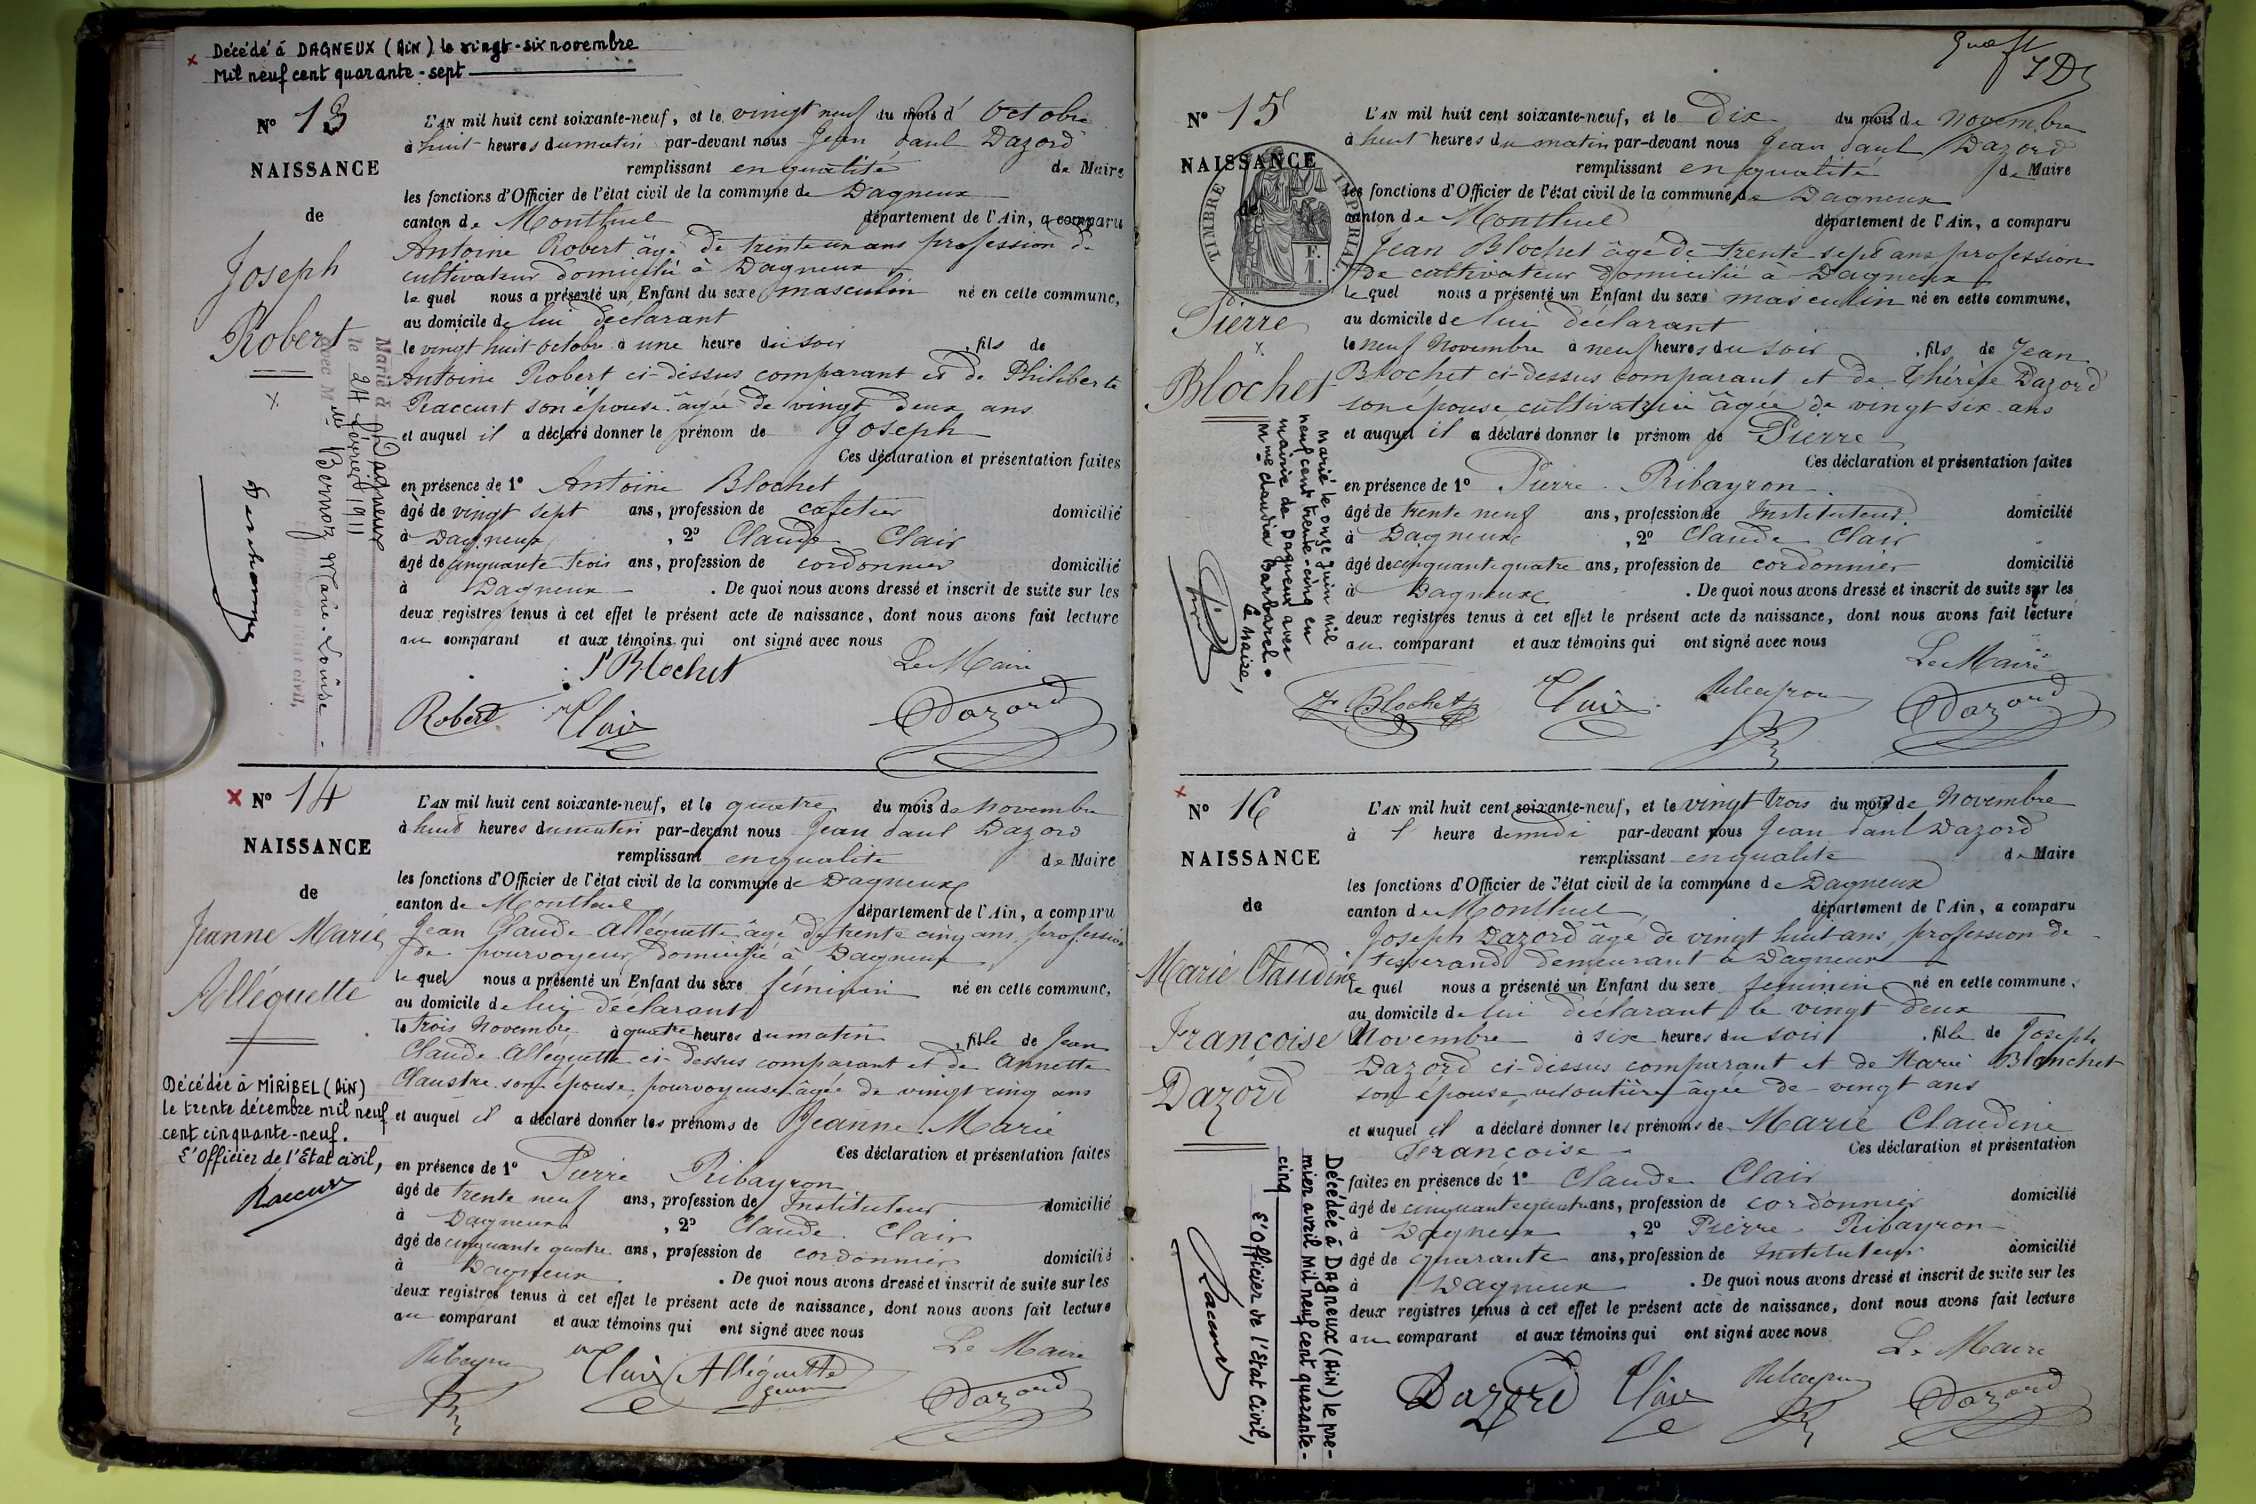 Décédé à DAGNEUX (AIN) le vingt-six novembre
Mil neuf cent quarante-sept
N° 13
NAISSANCE
de
Joseph
Robert
Marié à Dagneux
le 24 Février 1911
avec Mlle Bernoz Marie-Louise
L'AN mil huit cent soixante-neuf, et le vingt neuf du mois d' Octobre
à huit heures du matin par-devant nous Jean Paul Dazord
remplissant en qualité de Maire
les fonctions d'Officier de l'état civil de la commune de Dagneux
canton de Montluel département de l'Ain, a comparu
Antoine Robert âgé de trente un ans profession de
cultivateur domicilié à Dagneux
le quel nous a présenté un Enfant du sexe masculin né en cette commune,
au domicile de lui déclarant
le vingt huit octobre à une heure du soir, fils de
Antoine Robert ci-dessus comparant et de Philiberte
Raccurt son épouse âgée de vingt deux ans
et auquel il a déclaré donner le prénom de Joseph
Ces déclaration et présentation faites
en présence de 1° Antoine Blochet
âgé de vingt sept ans, profession de cafetier domicilié
à Dagneux, 2° Claude Clair
âgé de cinquante trois ans, profession de cordonnier domicilié
à Dagneux. De quoi nous avons dressé et inscrit de suite sur les
deux registres tenus à cet effet le présent acte de naissance, dont nous avons fait lecture
au comparant et aux témoins qui ont signé avec nous
Blochet Le Maire
Robert Clair Dazord
N° 14
NAISSANCE
de
Jeanne Marie
Alléguette
Décédée à MIRIBEL (AIN)
le trente décembre mil neuf
cent cinquante-neuf.
L'Officier de l'Etat civil,
Raccurt
L'AN mil huit cent soixante-neuf, et le quatre du mois de Novembre
à huit heures du matin par-devant nous Jean Paul Dazord
remplissant en qualité de Maire
les fonctions d'Officier de l'état civil de la commune de Dagneux
canton de Montluel département de l'Ain, a comparu
Jean Claude Alléguette âgé de trente cinq ans, profession
de pourvoyeur domicilié à Dagneux
le quel nous a présenté un Enfant du sexe féminin né en cette commune,
au domicile de lui déclarant
le trois Novembre à quatre heures du matin, fille de Jean
Claude Alléguette ci-dessus comparant et de Annette
Claustre son épouse, pourvoyeuse âgée de vingt cinq ans
et auquel il a déclaré donner les prénoms de Jeanne Marie
Ces déclaration et présentation faites
en présence de 1° Pierre Ribayron
âgé de trente neuf ans, profession de Instituteur domicilié
à Dagneux, 2° Claude Clair
âgé de cinquante quatre ans, profession de cordonnier domicilié
à Dagneux. De quoi nous avons dressé et inscrit de suite sur les
deux registres tenus à cet effet le présent acte de naissance, dont nous avons fait lecture
au comparant et aux témoins qui ont signé avec nous
Le Maire
Ribayron Clair Alléguette Dazord
N° 15
NAISSANCE
de
TIMBRE IMPÉRIAL
Pierre
Blochet
Marié le onze juin mil
neuf cent trente-cinq en
mairie de Dagneux avec
Mme Claudia Barbarel.
Le Maire,
L'AN mil huit cent soixante-neuf, et le Dix du mois de Novembre
à huit heures du matin par-devant nous Jean Paul Dazord
remplissant en qualité de Maire
les fonctions d'Officier de l'état civil de la commune de Dagneux
canton de Montluel département de l'Ain, a comparu
Jean Blochet âgé de trente sept ans profession
de cultivateur domicilié à Dagneux
le quel nous a présenté un Enfant du sexe masculin né en cette commune,
au domicile de lui déclarant
le neuf Novembre à neuf heures du soir, fils de Jean
Blochet ci-dessus comparant et de Thérèse Dazord
son épouse cultivatrice âgée de vingt six ans
et auquel il a déclaré donner le prénom de Pierre
Ces déclaration et présentation faites
en présence de 1° Pierre Ribayron
âgé de trente neuf ans, profession de Instituteur domicilié
à Dagneux, 2° Claude Clair
âgé de cinquante quatre ans, profession de cordonnier domicilié
à Dagneux. De quoi nous avons dressé et inscrit de suite sur les
deux registres tenus à cet effet le présent acte de naissance, dont nous avons fait lecture
au comparant et aux témoins qui ont signé avec nous
Le Maire
Blochet Clair Ribayron Dazord
N° 16
NAISSANCE
de
Marie Claudine
Françoise
Dazord
Décédée à DAGNEUX (AIN) le pre-
mier avril Mil neuf cent quarante-
cinq
L'Officier de l'Etat Civil,
Raccurt
L'AN mil huit cent soixante-neuf, et le vingt trois du mois de Novembre
à 1 heure de midi par-devant nous Jean Paul Dazord
remplissant en qualité de Maire
les fonctions d'Officier de l'état civil de la commune de Dagneux
canton de Montluel département de l'Ain, a comparu
Joseph Dazord âgé de vingt huit ans, profession de
tisserand demeurant à Dagneux
le quel nous a présenté un Enfant du sexe féminin né en cette commune,
au domicile de lui déclarant le vingt deux
Novembre à six heures du soir, fille de Joseph
Dazord ci-dessus comparant et de Marie Blanchet
son épouse, veloutière âgée de vingt ans
et auquel il a déclaré donner les prénoms de Marie Claudine
Françoise Ces déclaration et présentation
faites en présence de 1° Claude Clair
âgé de cinquante quatre ans, profession de cordonnier domicilié
à Dagneux, 2° Pierre Ribayron
âgé de quarante ans, profession de Instituteur domicilié
à Dagneux. De quoi nous avons dressé et inscrit de suite sur les
deux registres tenus à cet effet le présent acte de naissance, dont nous avons fait lecture
au comparant et aux témoins qui ont signé avec nous
Le Maire
Dazord Clair Ribayron Dazord